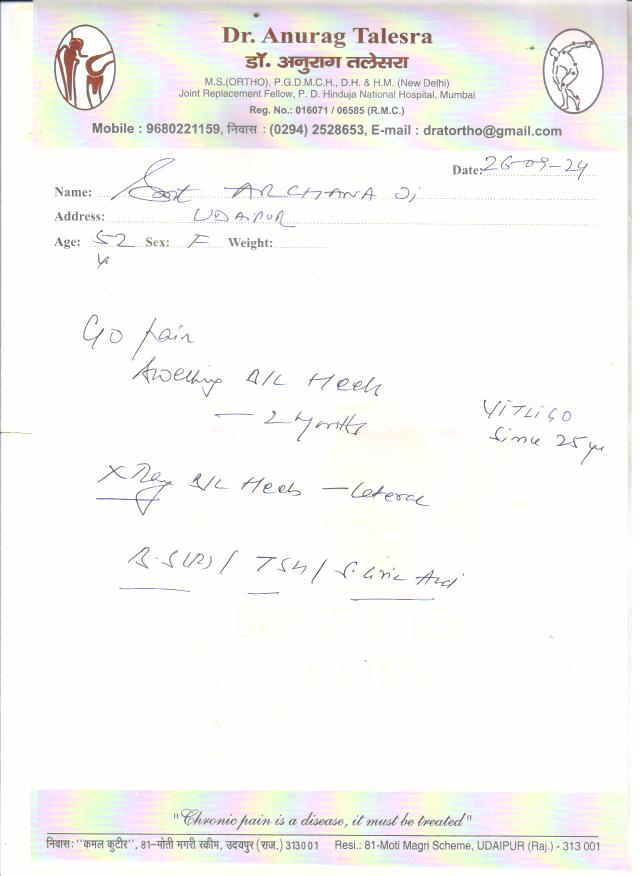 Dr. Anurag Talesra
डॉ. अनुराग तलेसरा
M.S.(ORTHO), P.G.D.M.C.H., D.H. & H.M. (New Delhi)
Joint Replacement Fellow, P. D. Hinduja National Hospital, Mumbai
Reg. No.: 016071 / 06585 (R.M.C.)
Mobile : 9680221159, निवास : (0294) 2528653, E-mail : dratortho@gmail.com
Date: 26-09-24
Name: ARCHANA Ji
Address: UDAIPUR
Age: 52 Sex: F Weight:
y
C/o pain
Swelling B/L Heels
— 2 months
VITLIGO
Since 25 yr
X Ray B/L Heels — Lateral
B.S(R) / TSH / S. Uric Acid
BONE
CLINI
"Chronic pain is a disease, it must be treated"
निवास: "कमल कुटीर", 81-मोती मगरी स्कीम, उदयपुर (राज.) 313001 Resi.: 81-Moti Magri Scheme, UDAIPUR (Raj.) - 313 001